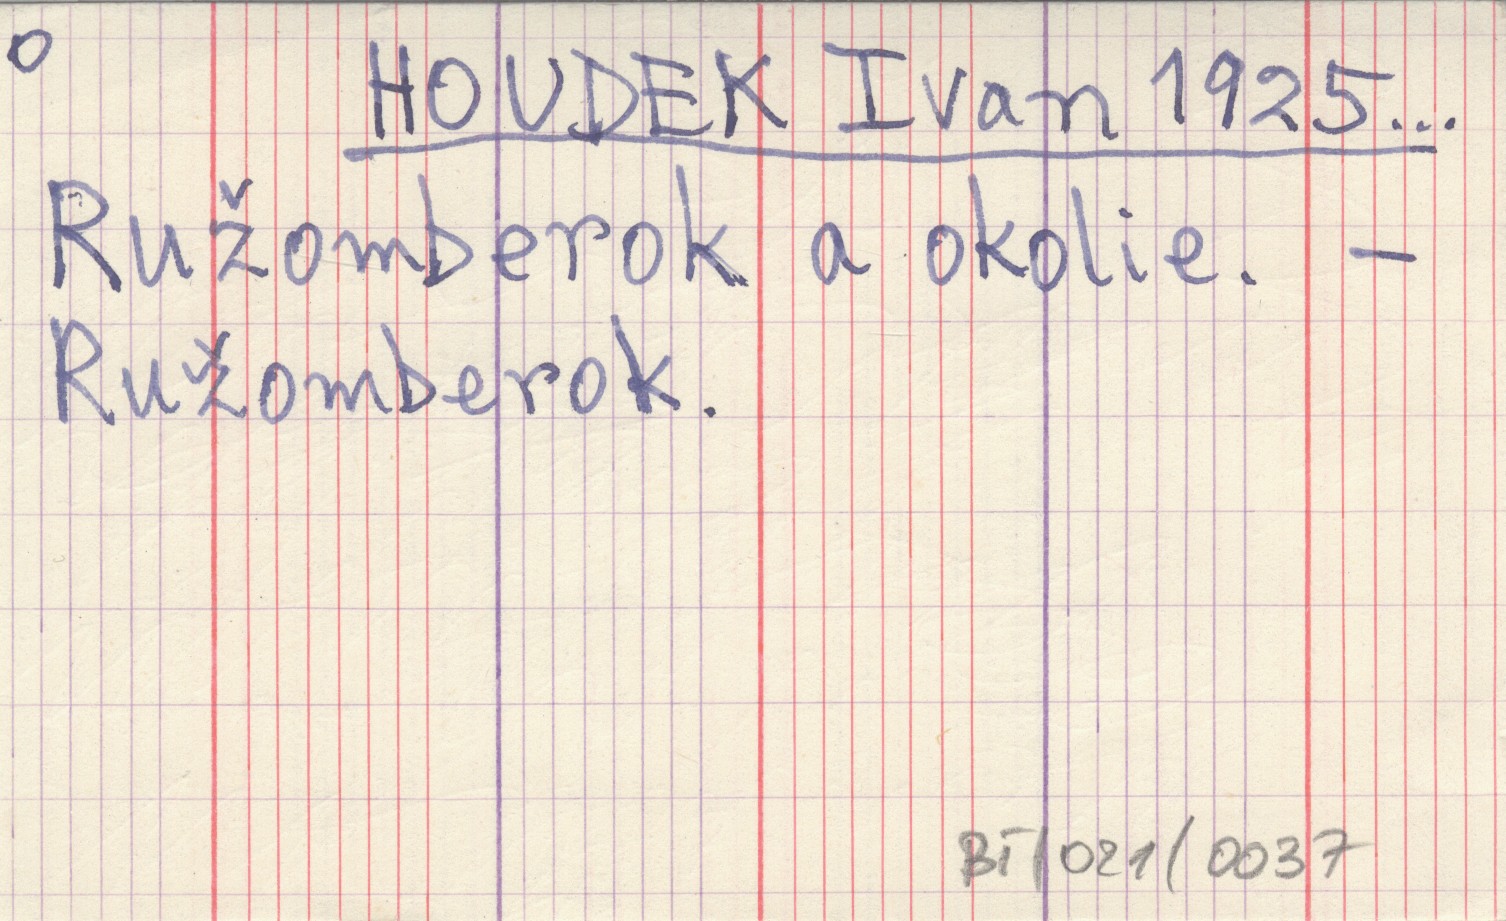 o
HOUDEK Ivan 1925...
Ružomberok a okolie. –
Ružomberok.
BI/021/0037